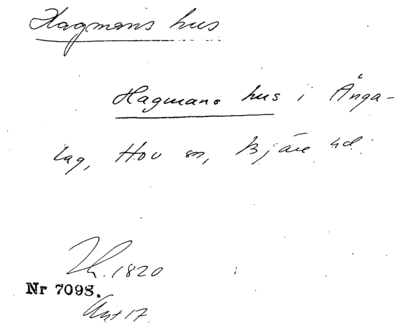 Hagmans hus
Hagmans hus i Ånga-
lag, Hov sn, Bjäre hd.
Lh. 1820
Nr 7098.
Ant 17.